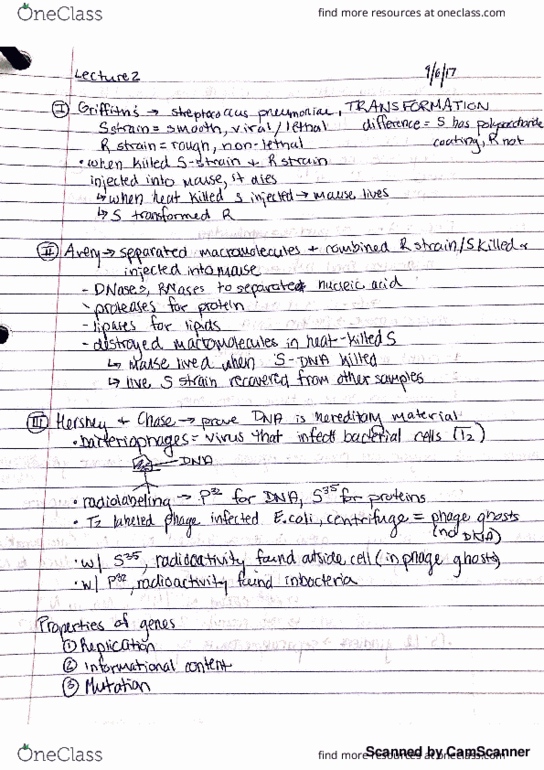 OneClass
find more resources at oneclass.com
Lecture 2 9/6/17
I Griffith's → streptococcus pneumoniae, TRANSFORMATION
S strain = smooth, viral / lethal difference = S has polysaccharide
R strain = rough, non-lethal coating, R not
• when killed S-strain + R strain
injected into mouse, it dies
↳ when heat killed S injected → mouse lives
↳ S transformed R
II Avery → separated macromolecules + combined R strain/S killed +
injected into mouse
- DNases, RNases to separate nucleic acid
- proteases for protein
- lipases for lipids
- distroyed macromolecules in heat-killed S
↳ Mouse lived when S-DNA killed
↳ live S strain recovered from other samples
III Hershey + Chase → prove DNA is hereditory material
• bacteriophages = virus that infect bacterial cells (T2)
DNA
• radiolabeling → P³² for DNA, S³⁵ for proteins
• T2 labeled phage infected E.coli, centrifuge = phage ghosts
(no DNA)
• w/ S³⁵, radioactivity found outside cell (in phage ghosts)
• w/ P³², radioactivity found in bacteria
Properties of genes
① Replication
② Informational content
③ Mutation
OneClass
find more resources at oneclass.com
Scanned by CamScanner